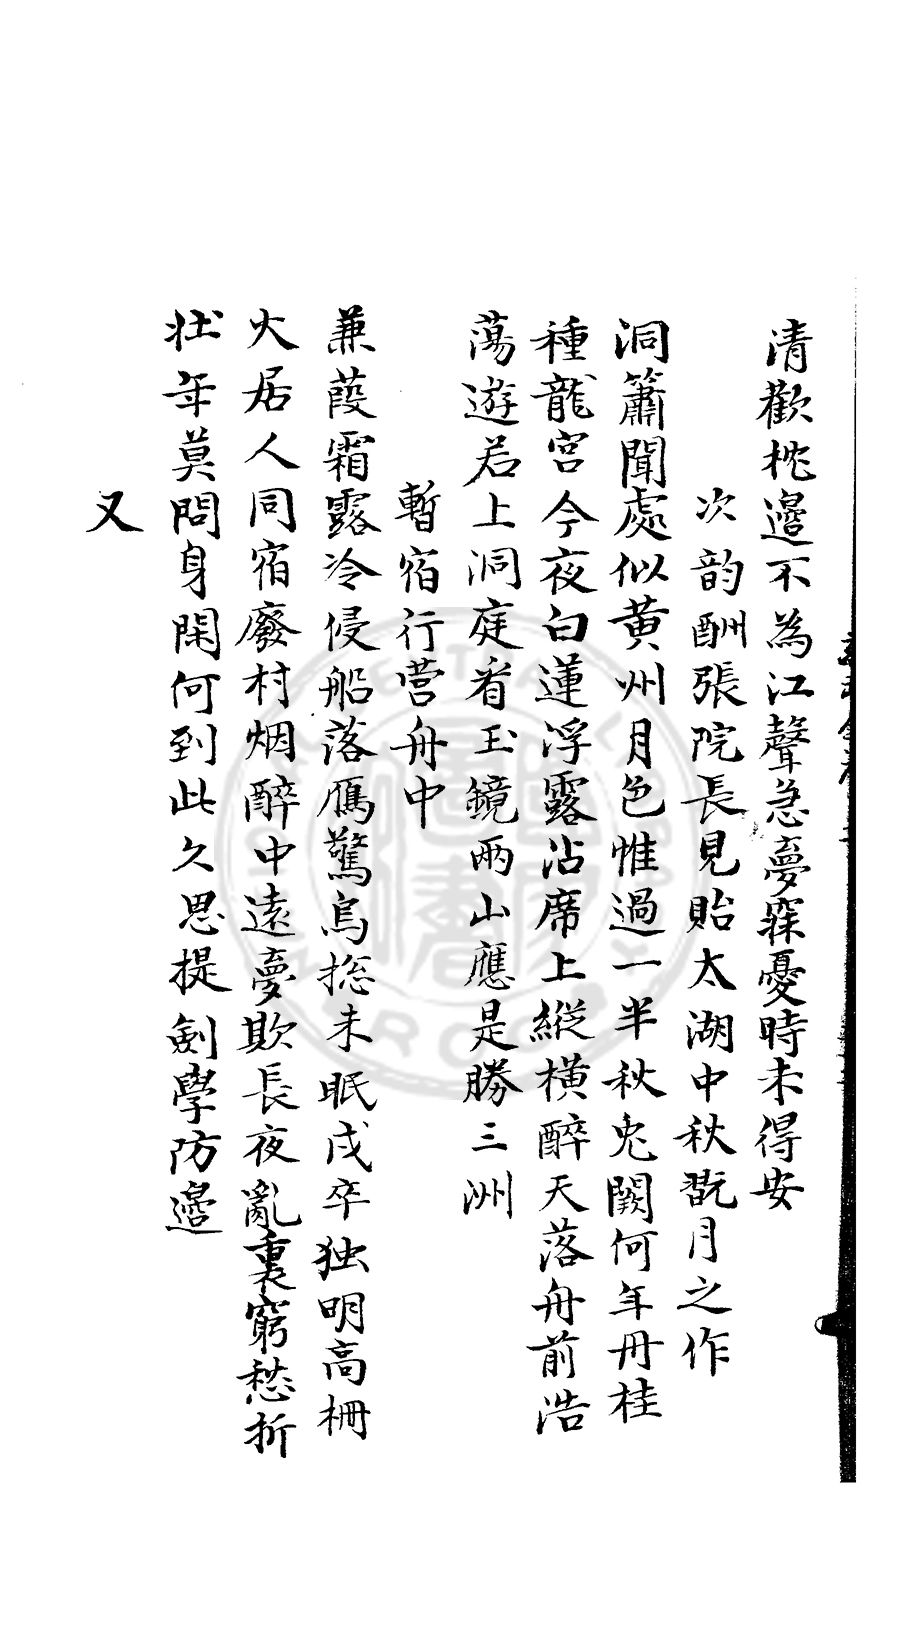 清歡枕邊不為江聲急夢寐憂時未得安
次韵酬張院長見貽太湖中秋翫月之作
洞簫聞處似黃州月色惟過一半秋兔闕何年丹桂
種龍宮今夜白蓮浮露沾席上縱橫醉天落舟前浩
蕩遊若上洞庭看玉鏡兩山應是勝三洲
暫宿行营舟中
蒹葭霜露冷侵船落鴈驚烏捴未眠戍卒独明高柵
火居人同宿廢村烟醉中遠夢欺長夜亂裏窮愁折
壮年莫問身閑何到此久思提劍學防邊
又